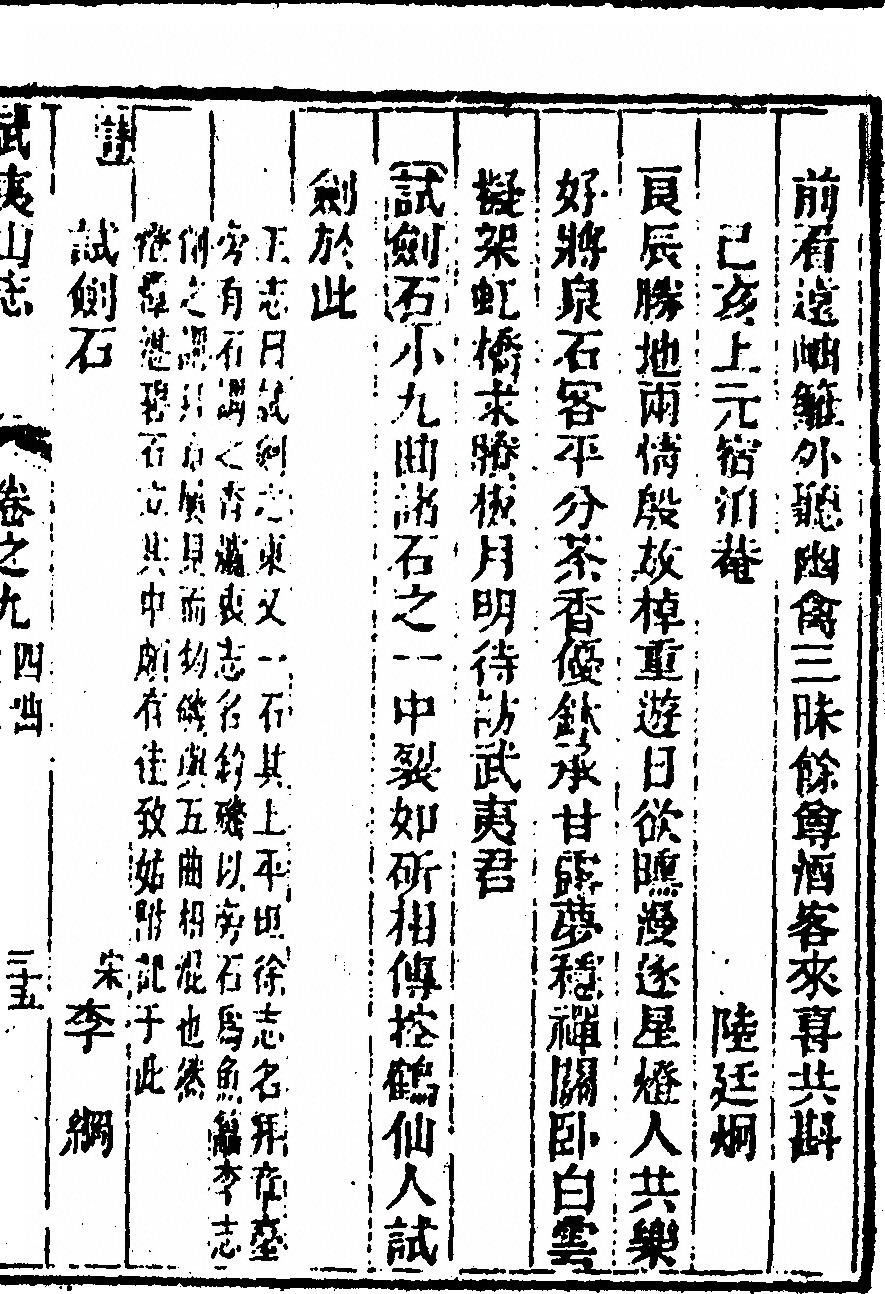 前看遠岫籬外聽幽禽三昧餘尊酒客來喜共斟
己亥上元宿泊菴 陸廷炯
良辰勝地兩情殷故棹重遊日欲曛漫逐星燈人共樂
好將泉石客平分茶香優鉢承甘露夢穩禪關卧白雲
擬架虹橋求驥梭月明待訪武夷君
試劍石小九曲諸石之一中裂如斫相傳控鶴仙人試
劍於此
王志曰試劍之東又一石其上平坦徐志名拜在臺
旁有石謂之香爐衷志名釣磯以旁石爲魚 李志
之 而 釣磯與五曲相混也然
石立其中頗有佳致姑附記于此
詩
試劍石 宋 李 綱
武夷山志 卷之九 四曲 三十五